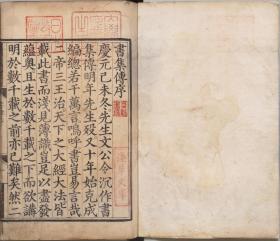 書集傳序
慶元己未冬先生文公令沉作書
集傳明年先生歿又十年始克成
編總若干萬言嗚呼書豈易言哉
二帝三王治天下之大經大法皆
載此書而淺見薄識豈足以盡發
蘊奧且生於數千載之下而欲講
明於數千載之前亦已難矣然